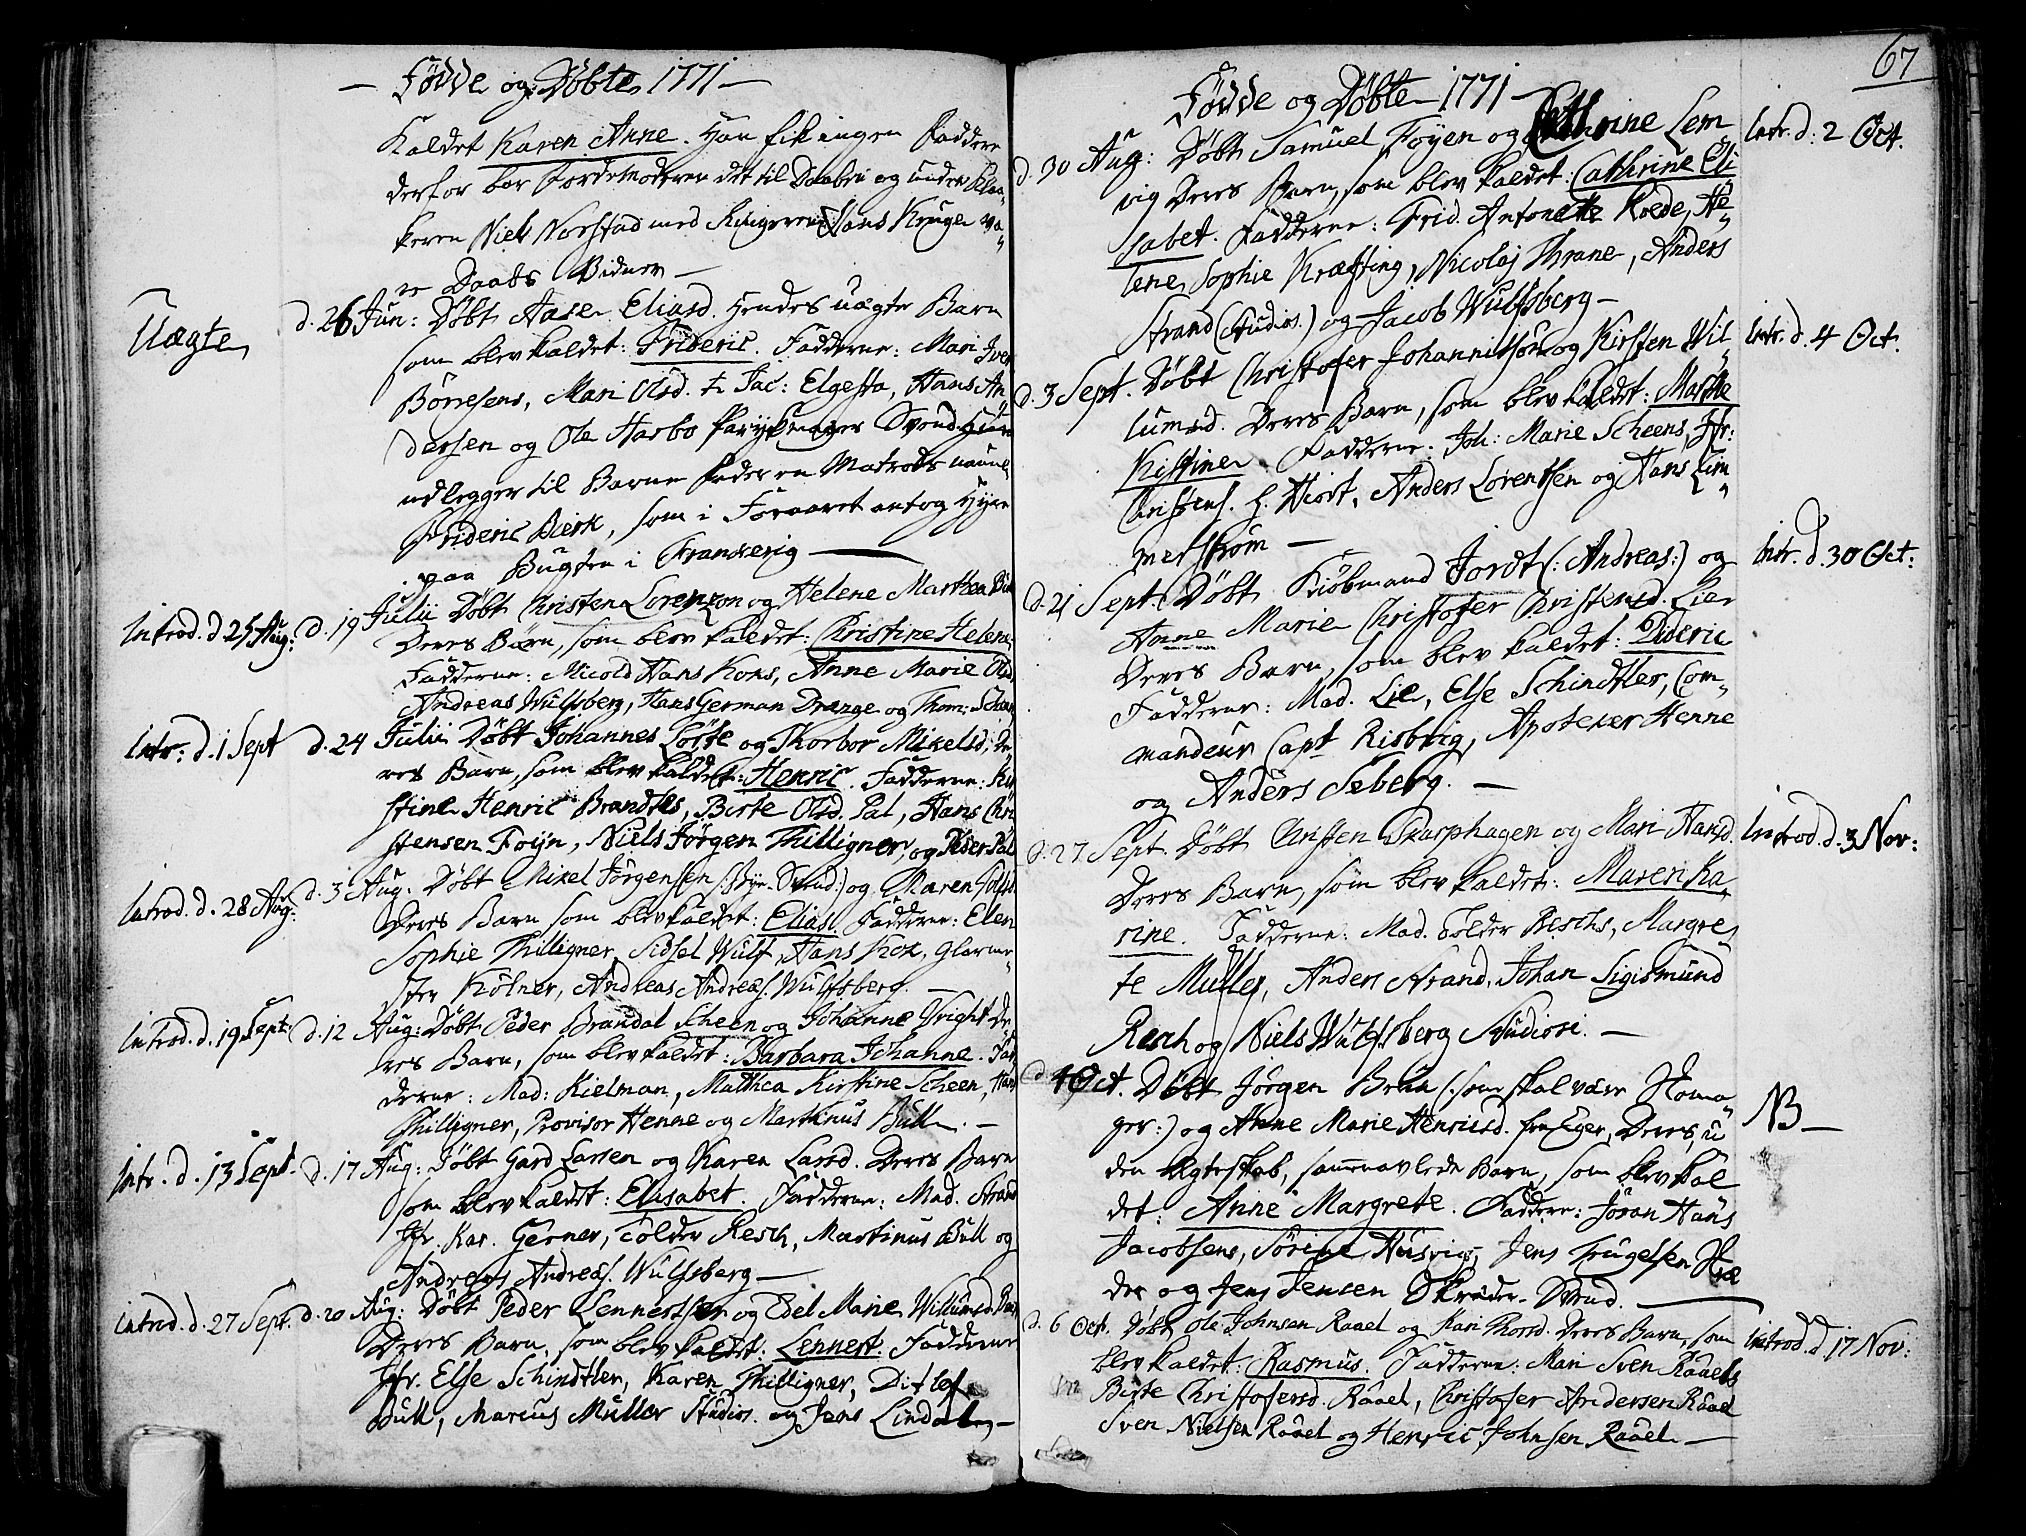 — Födde og Döbte 1771 —
Kaldet Karen Anne. Han fik ingen Faddere
derfor bar Jordemoderen det til Daaben og under Klok
keren Niels Norstad med Ringeren Hans Krüger va„
re Daabs Vidner —
Uægte
d. 26 Jun: Döbt Aase Eliasd. Hendes uægte Barn
som blev kaldet: Frideric. Fadderne: Mari Iver
Börresens, Mari Olsd. Jac: Elgesta, Hans An
dersen og Ole Harbo Parykmager Svend.
udlegger til Barne Fader en Matrods navnl.
Frideric Bierk, som i Foraaret antog Hyre
paa Bugten i Frankerig —
Introd. d 25 Aug: d. 19 Julii Döbt Christen Lorenzon og Helene Marthea
Deres Barn, som blev kaldet: Christine Helene
Fadderne: Nicolo Hans Koks, Anne Marie Olsd.
Andreas Wulfsberg, Hans German Drange og Thom:
Intr: d. 1 Sept d. 24 Julii Döbt Johannes Sörse og Thorbor Mikelsd. De„
res Barn, som blev kaldet: Henric. Fadderne: Kir
stine Henric Brandtes, Birte Olsd. Pal, Hans Chri
stensen Foyn, Niels Jörgen Thilligner, og Peder Pal
Introd. d. 28 Aug: d. 3 Aug: Döbt Mikel Jörgensen og Maren
Deres Barn som blev kaldet: Elias. Fadderne: Elen
Sophie Thilligner, Sidsel Wulf, Hans Kok, Glarme„
ster Kölner, Andreas Andreas. Wulfsberg. —
Introd. d. 19 Sept: d. 12 Aug: Döbt Peder Brandal Scheen og Johanne Vright De
res Barn, som blev kaldet: Barbara Johanne. Fad
derne: Mad: Kielman, Mathea Kirstine Scheen, Hans
Thilligner, Provisor Henne og Martinus Bull. —
Intr. d. 13 Sept. d. 17 Aug: Döbt Gard Larsen og Karen Larsd. Deres Barn
som blev kaldet: Elisabet. Fadderne: Mad. Strand
Jfr. Kar. Gerner, Tolder Resch, Martinus Bull og
Andreas Andreas. Wulfsberg —
introd. d. 27 Sept. d. 20 Aug: Döbt Peder Lennertsen og Edel Marie Willumsd.
Deres Barn, som blev kaldet: Lennert. Fadderne
Jfr. Else Schindtler, Karen Thilligner, Ditlef
Bull, Marcus Muller Studios. og Jens Lindal —
67
Födde og Döbte 1771 —
d. 30 Aug: Döbt Samuel Foyen og Cathrine Lem
vig Deres Barn, som blev kaldet: Cathrine Eli
sabet. Fadderne: Frid. Antonette Roede, He„
lene Sophie Kræfting, Nicolaj Thrane, Anders
Strand (Studios.) og Jacob Wulfsberg —
Intr. d. 2 Oct.
d. 3 Sept. Döbt Christofer Johannisön og Kirsten Wil
lumsd. Deres Barn, som blev kaldet: Marthe
Kistine. Fadderne: Joh: Marie Scheens, Jfr:
Christens. H. Hiort, Anders Lorentsen og Hans Lim„
metström —
Intr. d. 4 Oct.
d. 21 Sept. Döbt Kiöbmand Jordt (: Andreas:) og
Anne Marie Christofer Christensd. Lie
Deres Barn, som blev kaldet: Dideric
Fadderne: Mad. Lie, Else Schindtler, Com„
mandeur Capt Risbrig, Apoteker Henne
og Anders Seberg. —
Intr. d. 30 Oct:
d. 27 Sept. Döbt Christen Skarphagen og Mari Hansd.
Deres Barn, som blev kaldet: Maren Ka„
rine. Fadderne: Mad. Tolder Reschs, Margre„
te Muller, Anders Strand, Johan Sigismund
Resch og Niels Wulfsberg Studiosi. —
Introd. d. 3 Nov:
d. 4 Oct. Döbt Jörgen Brun (: som skal være Skoma„
ger:) og Anne Marie Henricsd. fra Eger, Deres, u
den Egteskab, sammenavlede Barn, som blev kal
det: Anne Margrete. Faddere: Jöran Hans
Jacobsens, Sörine Husvig, Jens Trugelsen
der og Jens Jensen Skræder-Svend. —
NB —
d. 6 Oct. Döbt Ole Johnsen Raael og Kari Thorsd. Deres Barn, som
blev kaldet: Rasmus. Fadderne: Mari Sven Raaels
Birte Christofersd. Raael, Christofer Andersen Raael
Sven Nielsen Raael og Henric Johnsen Raael —
Introd. d 17 Nov: